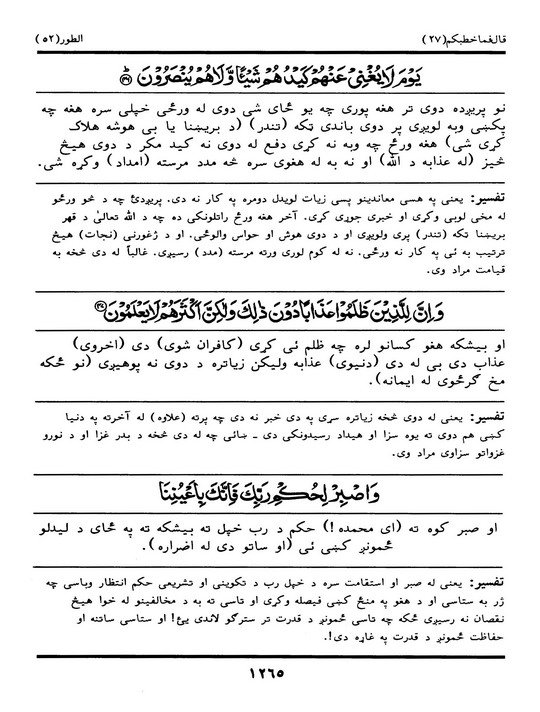 قال فما خطبکم (۲۷)
الطور (۵۲)
يَوْمَ لَا يُغْنِي عَنْهُمْ كَيْدُهُمْ شَيْئًا وَّلَا هُمْ يُنْصَرُونَ ۝۴۶
نو پریږده دوی تر هغه پوری چه یو ځای شی دوی له ورځی خپلی سره هغه چه
پکښی وبه لویږی پر دوی باندی ټکه (تندر) (د بریښنا یا بی هوشه هلاک
کړی شی) هغه ورځ چه وبه نه کړی دفع له دوی نه کید مکر د دوی هیڅ
څیز (له عذابه د الله) او نه به له هغوی سره څه مدد مرسته (امداد) وکړه شی.
تفسیر: یعنی په هسی معاندینو پسی زیات لویدل دومره په کار نه دی. پریږدئ چه د څو ورځو
له مخی لوبی وکړی او خبری جوړی کړی. آخر هغه ورځ راتلونکی ده چه د الله تعالیٰ د قهر
بریښنا ټکه (تندر) پری ولویږی او د دوی هوش او حواس والوځی. او د ژغورنی (نجات) هیڅ
ترتیب به ئی په کار نه ورځی. نه له کوم لوری ورته مرسته (مدد) رسیږی. غالباً له دی څخه به
قیامت مراد وی.
وَاِنَّ لِلَّذِينَ ظَلَمُوا عَذَابًا دُونَ ذٰلِكَ وَلٰكِنَّ اَكْثَرَهُمْ لَا يَعْلَمُونَ ۝۴۷
او بیشکه هغو کسانو لره چه ظلم ئی کړی (کافران شوی) دی (اخروی)
عذاب دی بی له دی (دنیوی) عذابه ولیکن زیاتره د دوی نه پوهیږی (نو ځکه
مخ ګرځوی له ایمانه).
تفسیر: یعنی له دوی څخه زیاتره سړی په دی خبر نه دی چه پرته (علاوه) له آخرته په دنیا
کښی هم دوی ته یوه سزا او هیداد رسیدونکی دی ـ ښائی چه له دی څخه د بدر غزا او د نورو
غزواتو سزاوی مراد وی.
وَاصْبِرْ لِحُكْمِ رَبِّكَ فَاِنَّكَ بِاَعْيُنِنَا
او صبر کوه ته (ای محمده!) حکم د رب خپل ته بیشکه ته په ځای د لیدلو
ځمونږ کښی ئی (او ساتو دی له اضراره).
تفسیر: یعنی له صبر او استقامت سره د خپل رب د تکوینی او تشریعی حکم انتظار وباسی چه
ژر به ستاسی او د هغو په منځ کښی فیصله وکړی او تاسی ته به د مخالفینو له خوا هیڅ
نقصان نه رسیږی ځکه چه تاسی ځمونږ د قدرت تر سترګو لاندی یئ! او ستاسی ساتنه او
حفاظت ځمونږ د قدرت په غاړه دی!.
۱۲۶۵